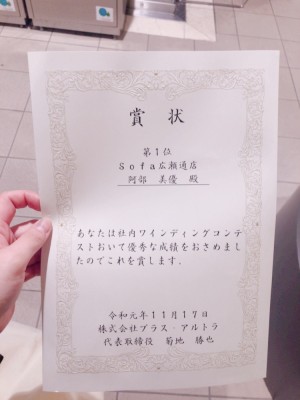 賞 状
第１位
Ｓｏｆａ広瀬通店
阿部 美優 殿
あなたは社内ワインディングコンテ
ストおいて優秀な成績をおさめまし
たのでこれを賞します．
令和元年１１月１７日
株式会社プラス‐アルトラ
代表取締役 菊地 勝也